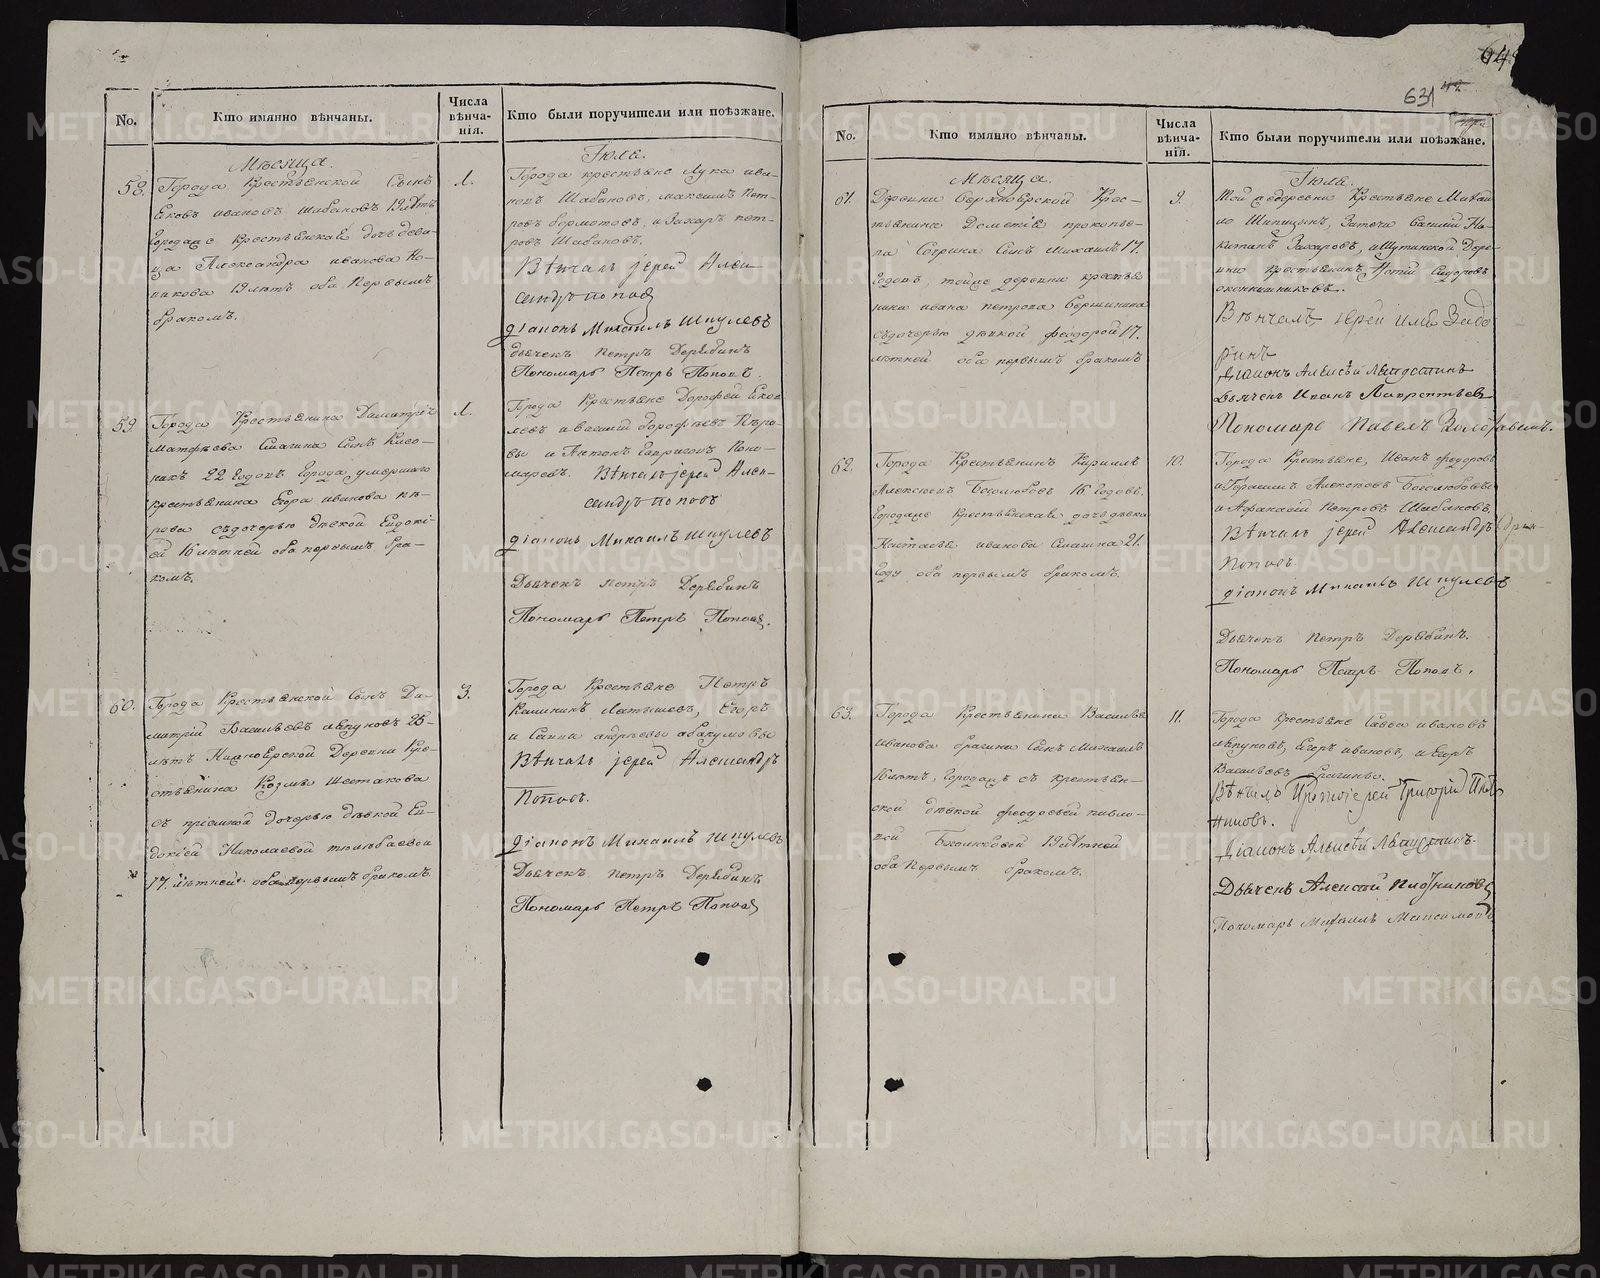 No.
Кто имянно вѣнчаны.
Числа вѣнча-
нія.
Кто были поручители или поѣзжане.
Мѣсяца
Іюля.
58.
Города Крестьянской Сынъ
Яковъ ивановъ шабановъ 19 лѣтъ
Городаже крестьянская дочь деви-
ца Александра иванова
19 лѣтъ оба Первымъ
бракомъ.
1.
Города крестьяне Лука ива-
новъ Шабановъ, максимъ Пет-
ровъ бормотовъ, и Захаръ пет-
ровъ Шабановъ.
Вѣнчалъ іерей Алек
сандръ поповъ
діаконъ Михаилъ Шпулевъ
дьячекъ Петръ Дерябинъ
Пономарь Петръ Поповъ.
59.
Города Крестьянина Дмитрія
матфѣева Смагина Сынъ
22 Годовъ Города умершаго
крестьянина Егора иванова
съдочерью дѣвкой Евдокі-
ей 16 лѣтней оба первымъ бра-
комъ.
1.
Города Крестьяне Дорофей Яков
левъ и василій дорофѣевъ
и Антонъ
Вѣнчалъ іерей Алек-
сандръ поповъ
діаконъ Михаилъ шпулевъ
Дьячекъ петръ Дерябинъ
Пономарь Петръ Поповъ.
60.
Города Крестьянской Сынъ Ди-
митрій Васильевъ ляпуновъ 26
лѣтъ Деревни Кре-
стьянина Козмы шестакова
съ пріемной дочерью дѣвкой Ев-
докіей Николаевой
17. лѣтней оба первымъ бракомъ.
3.
Города Крестьяне Петръ
Калининъ Латышевъ, Егоръ
и Савва андрѣевы абакумовы
Вѣнчалъ іерей Александръ
Поповъ.
діаконъ Михаилъ Шпулевъ
Дьячекъ петръ Дерябинъ
Пономарь Петръ Поповъ
631
No.
Кто имянно вѣнчаны.
Числа вѣнча-
нія.
Кто были поручители или поѣзжане.
Мѣсяца.
Іюля.
61.
Деревни Верхноярской Крес-
тьянина Дометія прокопье-
ва Согрина Сынъ Михаилъ 17.
Годовъ, тойже деревни крестья
нина ивана петрова Вершинина
съдочерью дѣвкой феодорой 17.
лѣтней оба первымъ бракомъ
9.
Той же деревни Крестьяне Михай
ло Шипицинъ, Затеча Василій Ни-
китинъ Захаровъ, и Шутинской Дере-
вни крестьянинъ Фотій Сидоровъ
оконнишниковъ.
Вѣнчалъ, іерей Илья Задо
ринъ
Діаконъ Алексѣй Левустинъ
Дьячекъ Иванъ Лаврентьевъ
Пономарь Павелъ
62.
Города Крестьянинъ Кириллъ
Алексіевъ Боголюбовъ 16 Годовъ.
Городаже Крестьянская дочь дѣвка
Настасья иванова Смагина 21.
Году оба первымъ бракомъ.
10.
Города Крестьяне, Иванъ феодоровъ
и Герасимъ Алексѣевъ Боголюбовы
и Афанасій Петровъ Шабановъ.
Вѣнчалъ іерей Александръ
Поповъ.
діаконъ Михаилъ Шпулевъ
Дьячекъ петръ Дерябинъ.
Пономарь Петръ Поповъ.
63.
Города Крестьянина Василья
иванова брагина Сынъ Михаилъ
лѣтъ, Городаже съ крестьян-
ской дѣвкой феодосьей павло-
вой Боголюбовой 19 лѣтней
оба Первымъ бракомъ.
11.
Города Крестьяне Савва ивановъ
ляпуновъ, Егоръ ивановъ, и Егоръ
Васильевъ брагины.
Вѣнчалъ Протоіерей Григорій Плот
никовъ.
Діаконъ Алексѣй Левустинъ
Дьячекъ Алексѣй Плотниковъ
Пономарь Михаилъ Максимовъ
METRIKI.GASO-URAL.RU